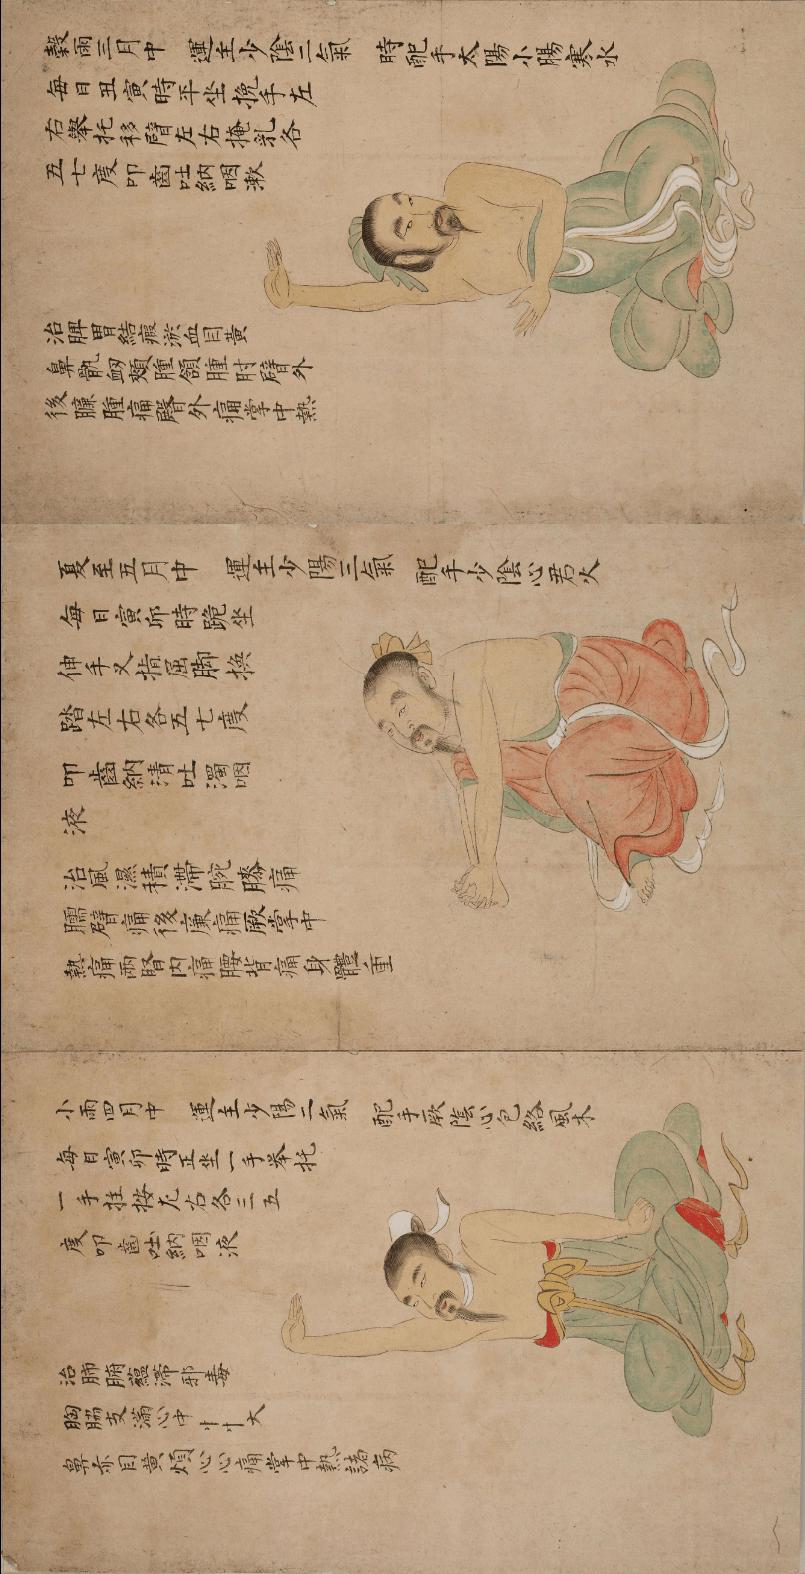 穀雨三月中 運主少陰二氣 時配手太陽小腸寒水
每日丑寅時平坐挽手左
右舉托移臂左右掩乳各
五七度叩齒吐納咽漱
治脾胃結瘕淤血目黃
鼻鼽衂頰腫頷腫肘臂外
後臁腫痛臀外痛掌中熱
夏至五月中 運主少陽三氣 配手少陰心君火
每日寅卯時跪坐
伸手叉指屈脚換
踏左右各五七度
叩齒納清吐濁咽
液
治風濕積滯腕膝痛
臑臂痛後廉痛厥掌中
熱痛兩腎內痛腰背痛身體重
小雨四月中 運主少陽二氣 配手厥陰心包絡風木
每日寅卯時正坐一手举托
一手拄按左右各三五
度叩齒吐納咽液
治肺腑蘊滯邪毒
胸脇支滿心中忄忄大
鼻赤目黃煩心心痛掌中熱諸病